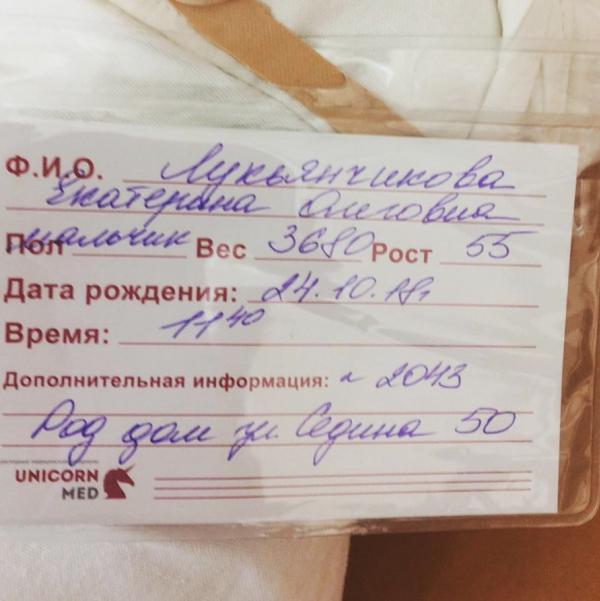 Ф.И.О. Лукьянчикова
Екатерина Олеговна
Пол мальчик Вес 3680 Рост 55
Дата рождения: 24.10.18г
Время: 11 40
Дополнительная информация: 2043
Род дом ул. Седина 50
UNICORN
MED